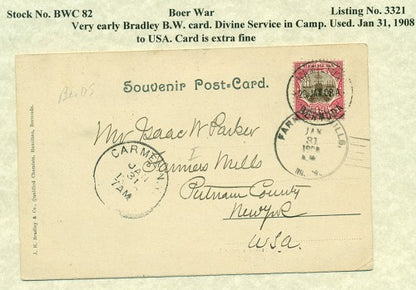 Stock No. BWC 82 Boer War Listing No. 3321
Very early Bradley B.W. card. Divine Service in Camp. Used. Jan 31, 1908
to USA. Card is extra fine
Souvenir Post-Card.
Mr Isaac W Parker
Farmers Mills
Putnam County
New York
U.S.A.
CARMEL N.Y.
JAN
31
7AM
FARMERS MILLS,
JAN
31
1908
BERMUDA
J. H. Bradley & Co., Qualified Chemists, Hamilton, Bermuda.